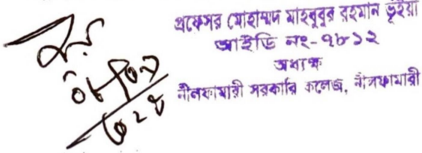 প্রফেসর মোহাম্মদ মাহবুবুর রহমান ভূইয়া
আইডি নং-৭৮১২
অধ্যক্ষ
নীলফামারী সরকারি কলেজ, নীলফামারী